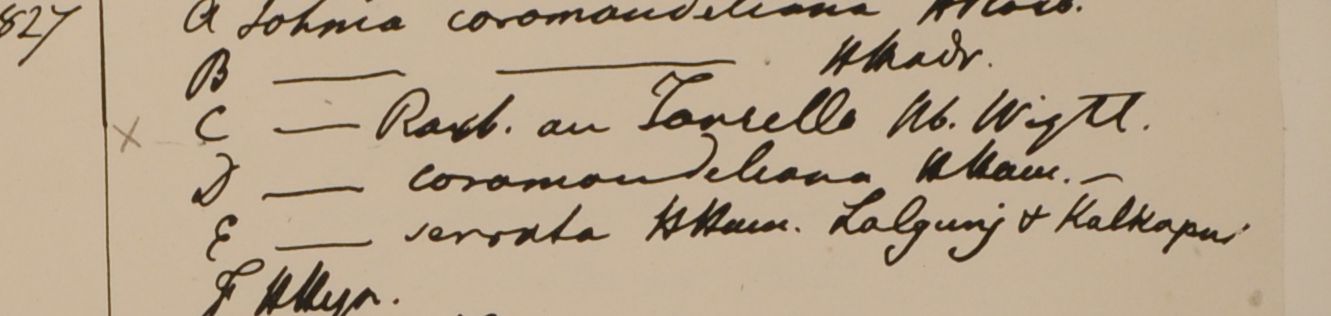 827 A Johnia coromandeliana HRoxb.
B — — HMadr.
X C — Roxb. an Tonsella Hb. Wight.
D — coromandeliana HHam. —
E — serrata HHam. Lalgunj & Kalkapur
F HHeyn.